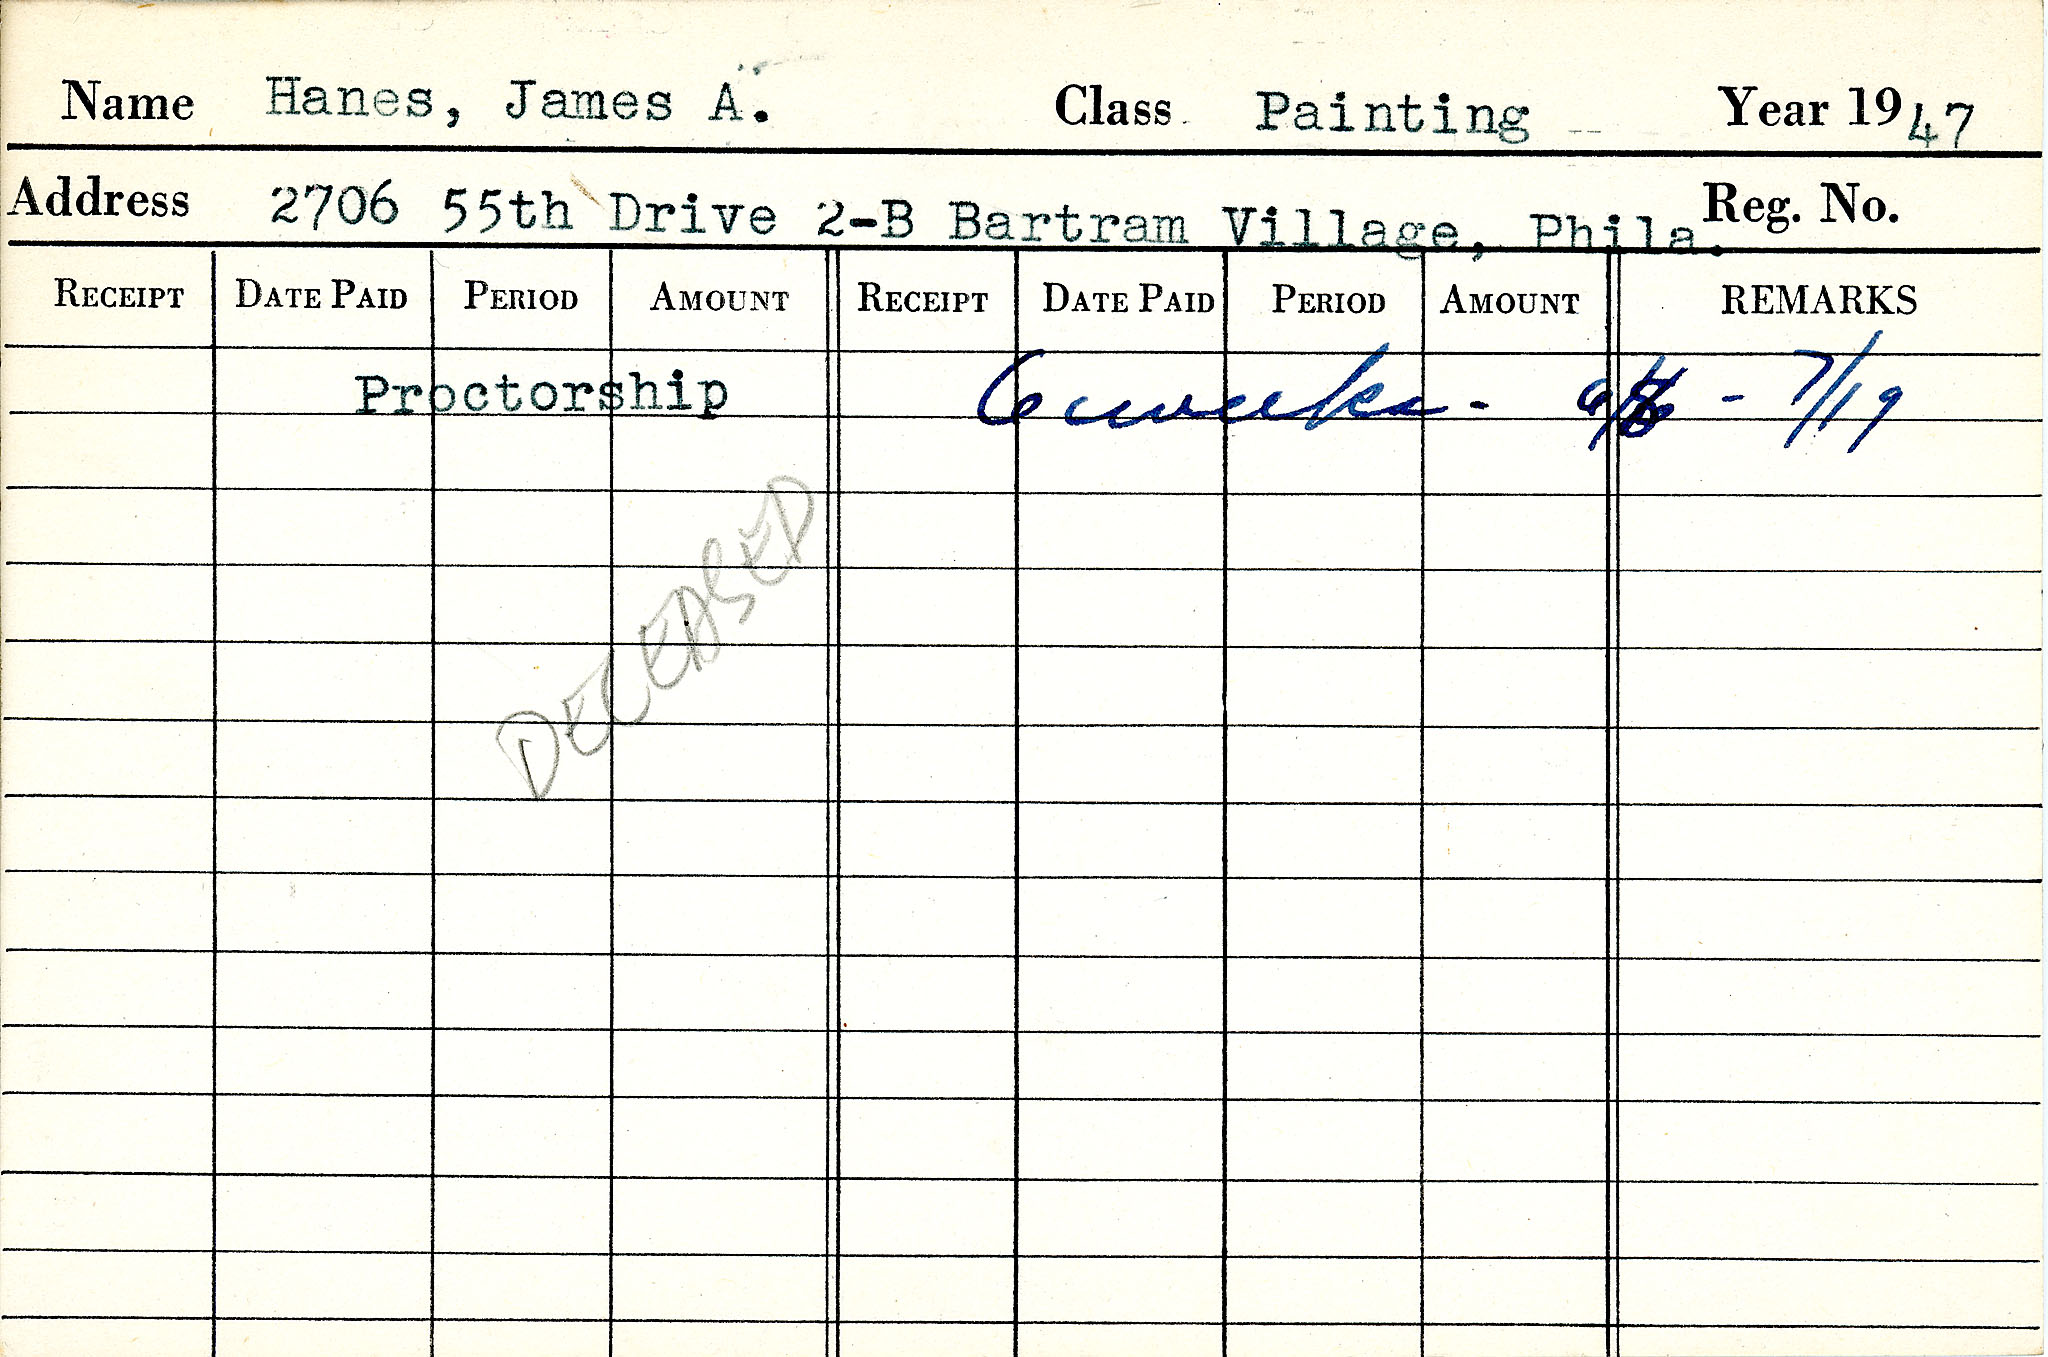 Name Hanes, James A. Class Painting Year 1947
Address 2706 55th Drive 2-B Bartram Village, Phila. Reg. No.
RECEIPT DATE PAID PERIOD AMOUNT RECEIPT DATE PAID PERIOD AMOUNT REMARKS
Proctorship 6 weeks - - 7/19
DECEASED